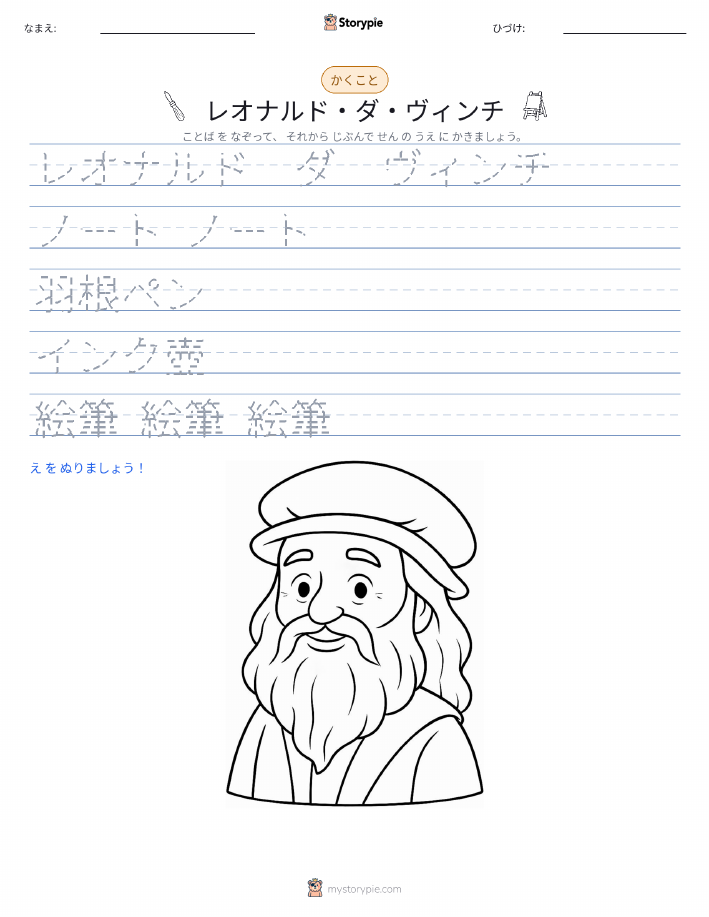 なまえ:
Storypie
ひづけ:
かくこと
レオナルド・ダ・ヴィンチ
ことば を なぞって、 それから じぶんで せん の うえ に かきましょう。
レオナルド ダ ヴィンチ
ノート ノート
羽根ペン
インク壺
絵筆 絵筆 絵筆
え を ぬりましょう！
mystorypie.com